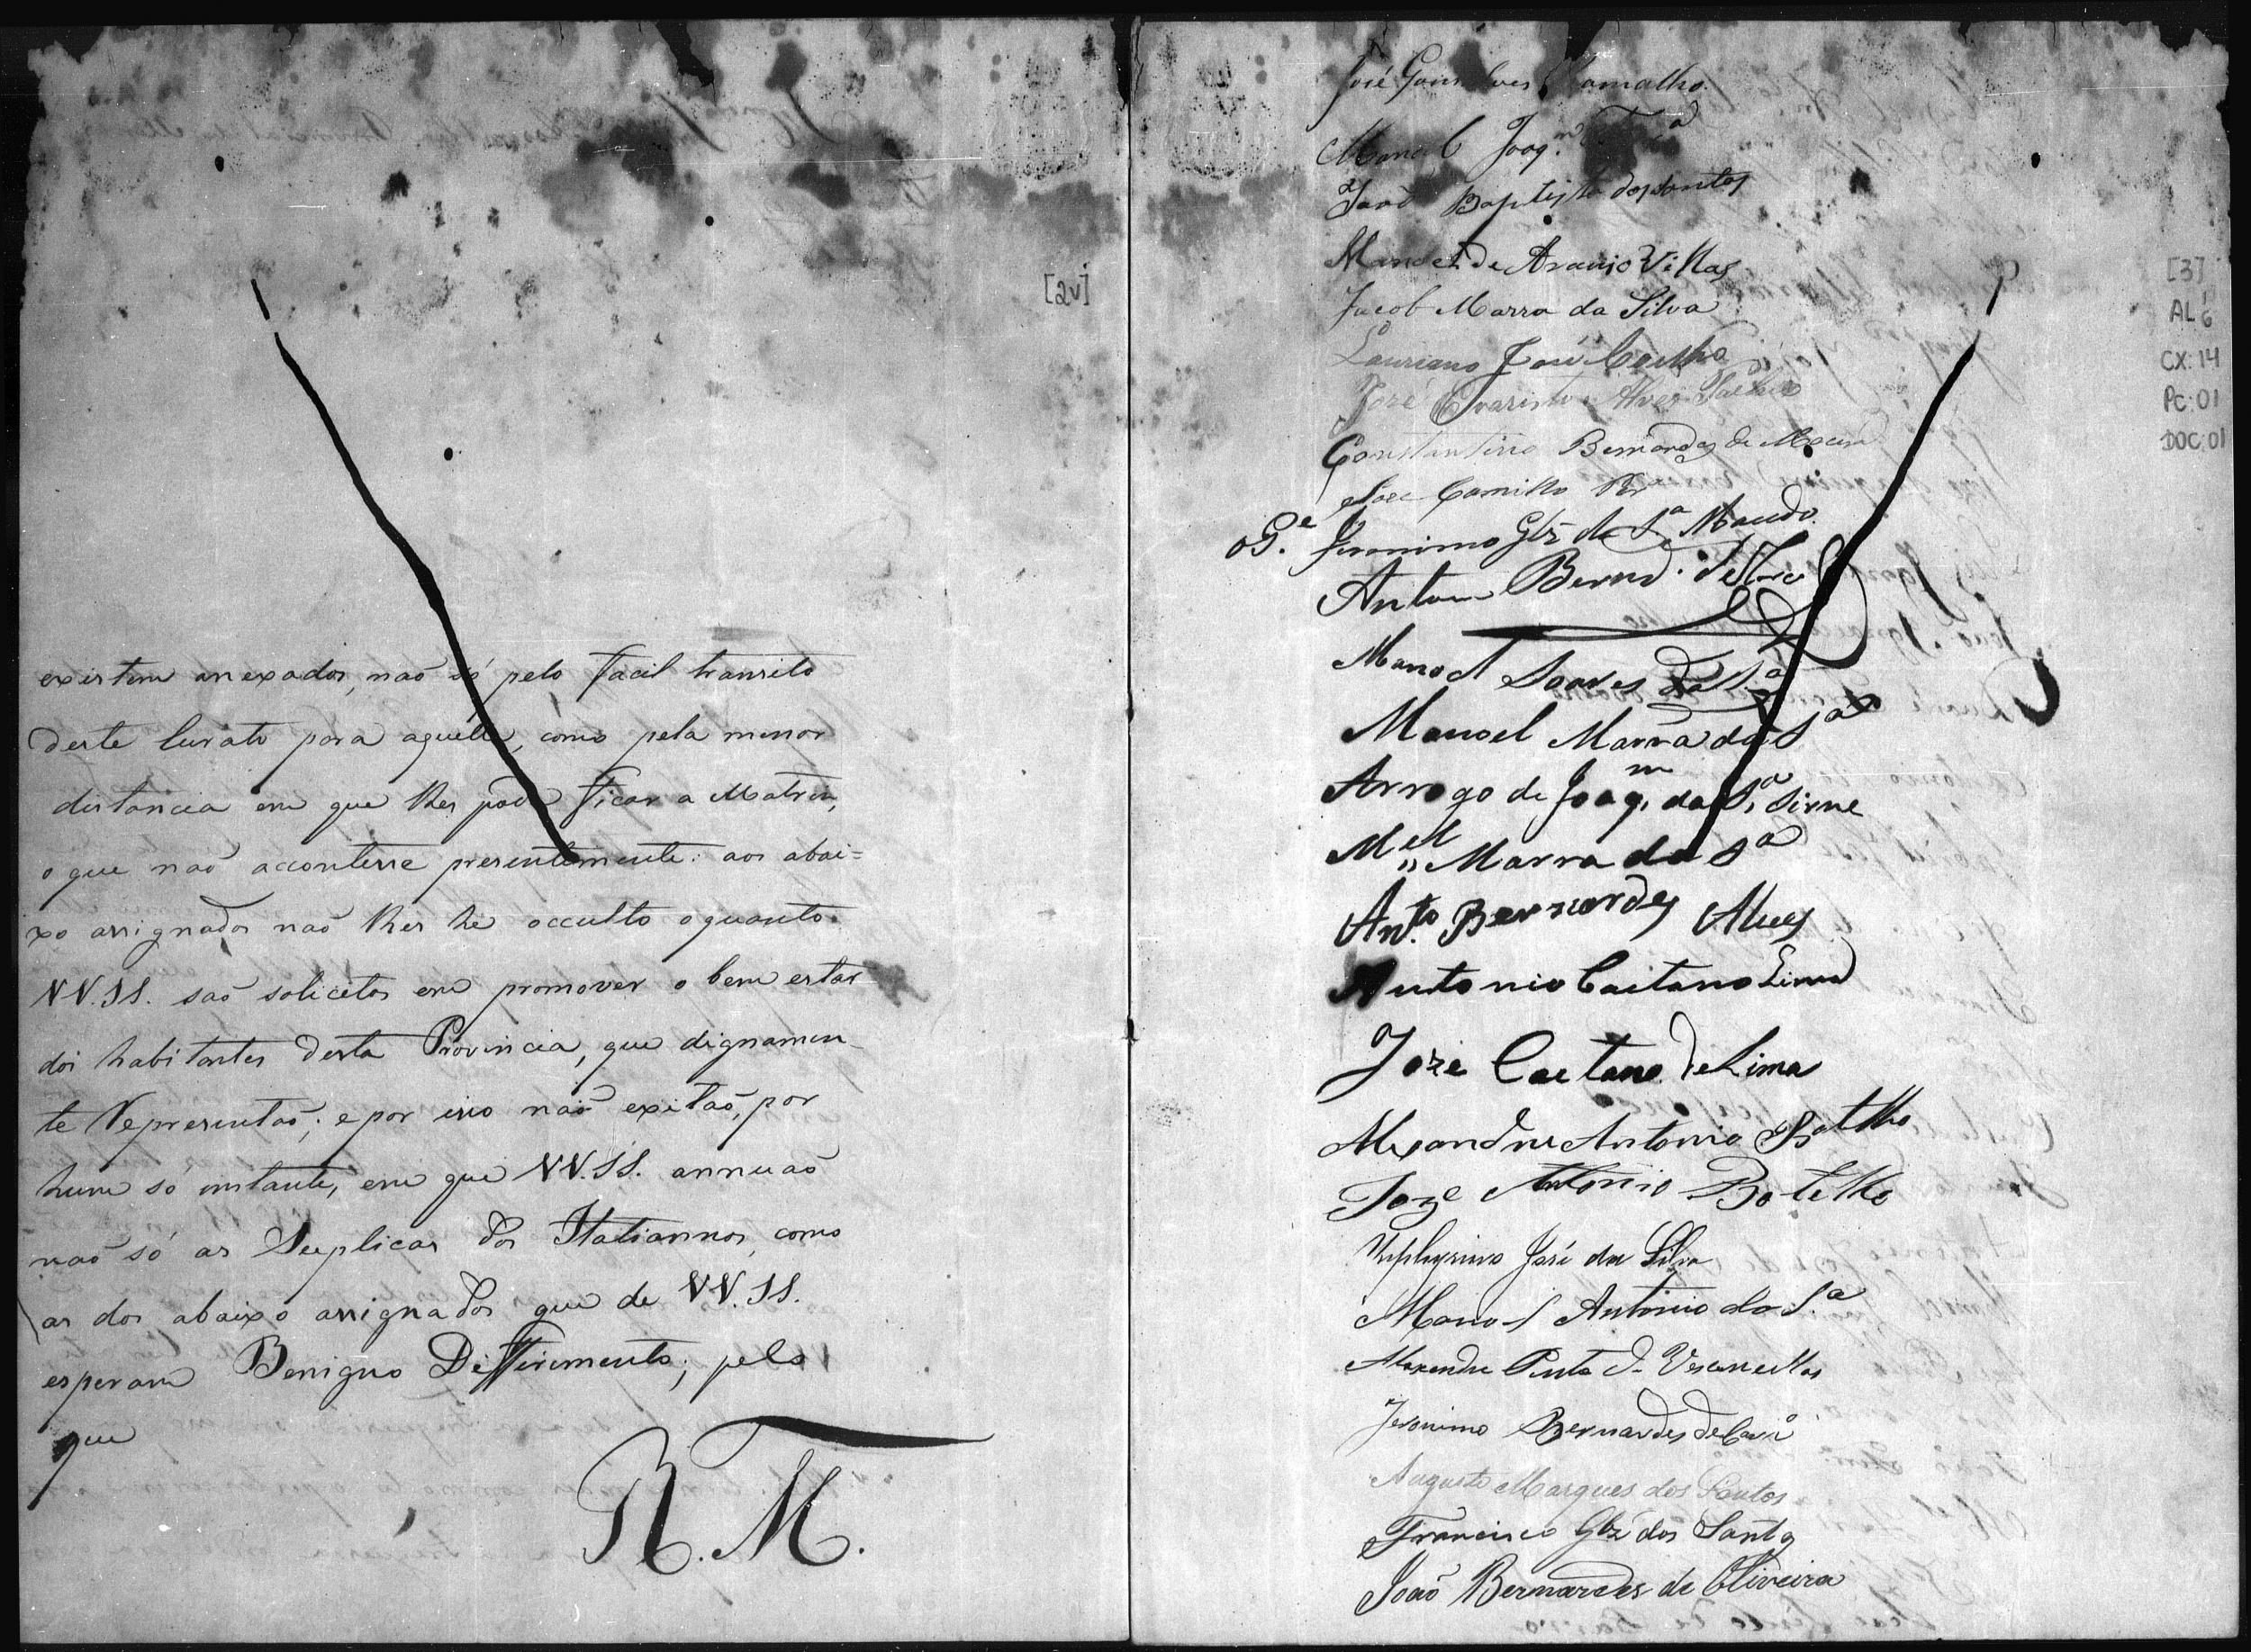 [2v]
existem anexados, naõ só pelo facil transito
deste Curato para aquelle, como pela menor
distancia em que lhes póde ficar a Matriz,
o que naõ acontesse presentemente: aos abai=
xo assignados naõ lhes he occulto o quanto
VV.SS. saõ solicitos em promover o bem estar
dos habitantes desta Provincia, que dignamen
te Representaõ; e por isso naõ exitaõ, por
hum só instante, em que VV.SS. annuaõ
naõ só as Supplicas dos Italiannos, como
as dos abaixo assignados que de VV.SS.
esperam Benigno Differimento; pelo
que
R.M.
José Gonsalves Ramalho
Manoel Joaq.m
Joaõ Baptista dos Santos
Manoel de Araujo Villas
Jacob Marra da Silva
Lauriano José Coelho
José Evaristo Alves
Constantino Bernardes de
José Camillo
Jeronimo Glz da S.a Macedo
Antonio Bernd.
Manoel Soares da S.a
Manoel Marra da S.a
Arrogo de Joaq.m da S.a Sirne
M.el Marra da S.a
Ant.o Bernardes Alves
Antonio Caitano Lima
Joze Caetano de Lima
Alexandre Antonio Botelho
Joze Antonio Botelho
José da Silva
Manoel Antonio da S.a
Alexandre Pinto de Vasconcellos
Jeronimo Bernardes de
Augusto Marques dos Santos
Francisco Glz dos Santos
Joaõ Bernardes de Oliveira
[3]
AL 6
CX: 14
PC: 01
DOC: 01